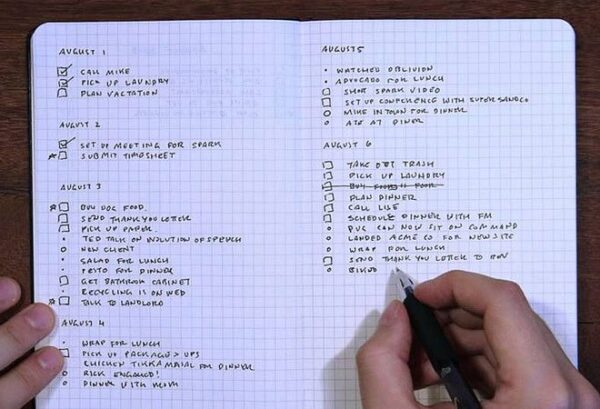 AUGUST 1
CALL MIKE
PICK UP LAUNDRY
PLAN VACTATION
AUGUST 2
SET UP MEETING FOR SPARK
SUBMIT TIMESHEET
AUGUST 3
BUY DOG FOOD.
SEND THANK YOU LETTER
PICK UP PAPER.
TED TALK ON EVOLUTION OF SPEECH
NEW CLIENT
SALAD FOR LUNCH
PESTO FOR DINNER
GET BATHROOM CABINET
RECYCLING IS ON WED
TALK TO LANDLORD
AUGUST 4
WRAP FOR LUNCH
PICK UP PACKAGE > UPS
CHICKEN TIKKA MASALA FOR DINNER
RICK ENGAGED!
DINNER WITH MOM
AUGUST 5
WATCHED OBLIVION
ADVOCADO FOR LUNCH
SHOOT SPARK VIDEO
SET UP CONFERENCE WITH
MIKE IN TOWN FOR DINNER
ATE AT DINER
AUGUST 6
TAKE OUT TRASH
PICK UP LAUNDRY
BUY
PLAN DINNER
CALL LISE
SCHEDULE DINNER WITH FM
PUG CAN NOW SIT ON COMMAND
LANDED ACME CO FOR NEW SITE
WRAP FOR LUNCH
SEND THANK YOU LETTER TO
BIKED